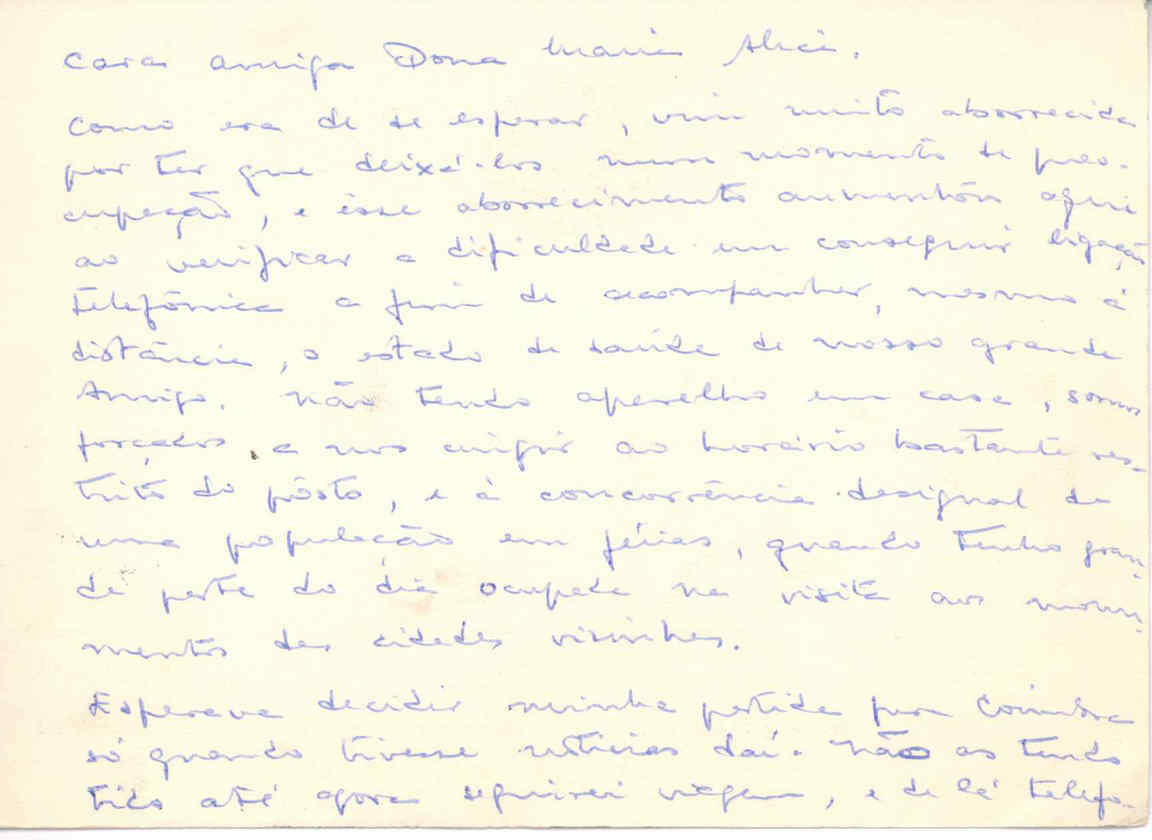 Cara amiga Dona Maria Alice.
Como era de se esperar, vim muito aborrecida
por ter que deixá-los num momento de preo-
cupação, e êsse aborrecimento aumentou aqui
ao verificar a dificuldade em conseguir ligação
telefônica a fim de acompanhar, mesmo à
distância, o estado de saúde de nosso grande
Amigo. Não tendo aparelho em casa, somos
forçados a nos cingir ao horário bastante res-
trito do pôsto, e à concorrência desigual de
uma população em férias, quando tenho gran-
de parte do dia ocupada na visita aos monu-
mentos das cidades visinhas.
Esperava decidir minha partida para Coimbra
só quando tivesse notícias daí. Não as tendo
tido até agora seguirei viagem, e de lá telefo-